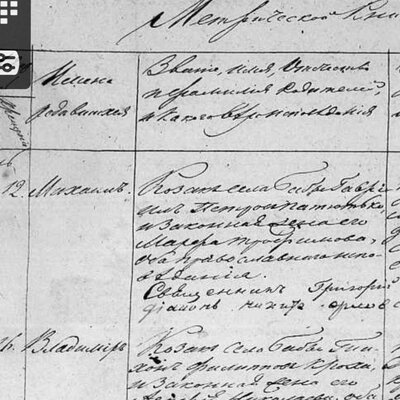 Метрической Кни
Имена
родавшихся
Званіе, имя, Отчество
и фамилія родителей,
и какого вѣроисповѣданія
12. Михаилъ.
Козакъ села Бабы Гаврі
илъ Петровъ
и законная жена его
Марѳа Трофимова,
оба православнаго испо
вѣданія.
Священникъ Григорій
діаконъ Никита Орлов
16. Владиміръ
Козакъ села Бабы Ти
хонъ Филиповъ
и законная жена его
Николаева, оба